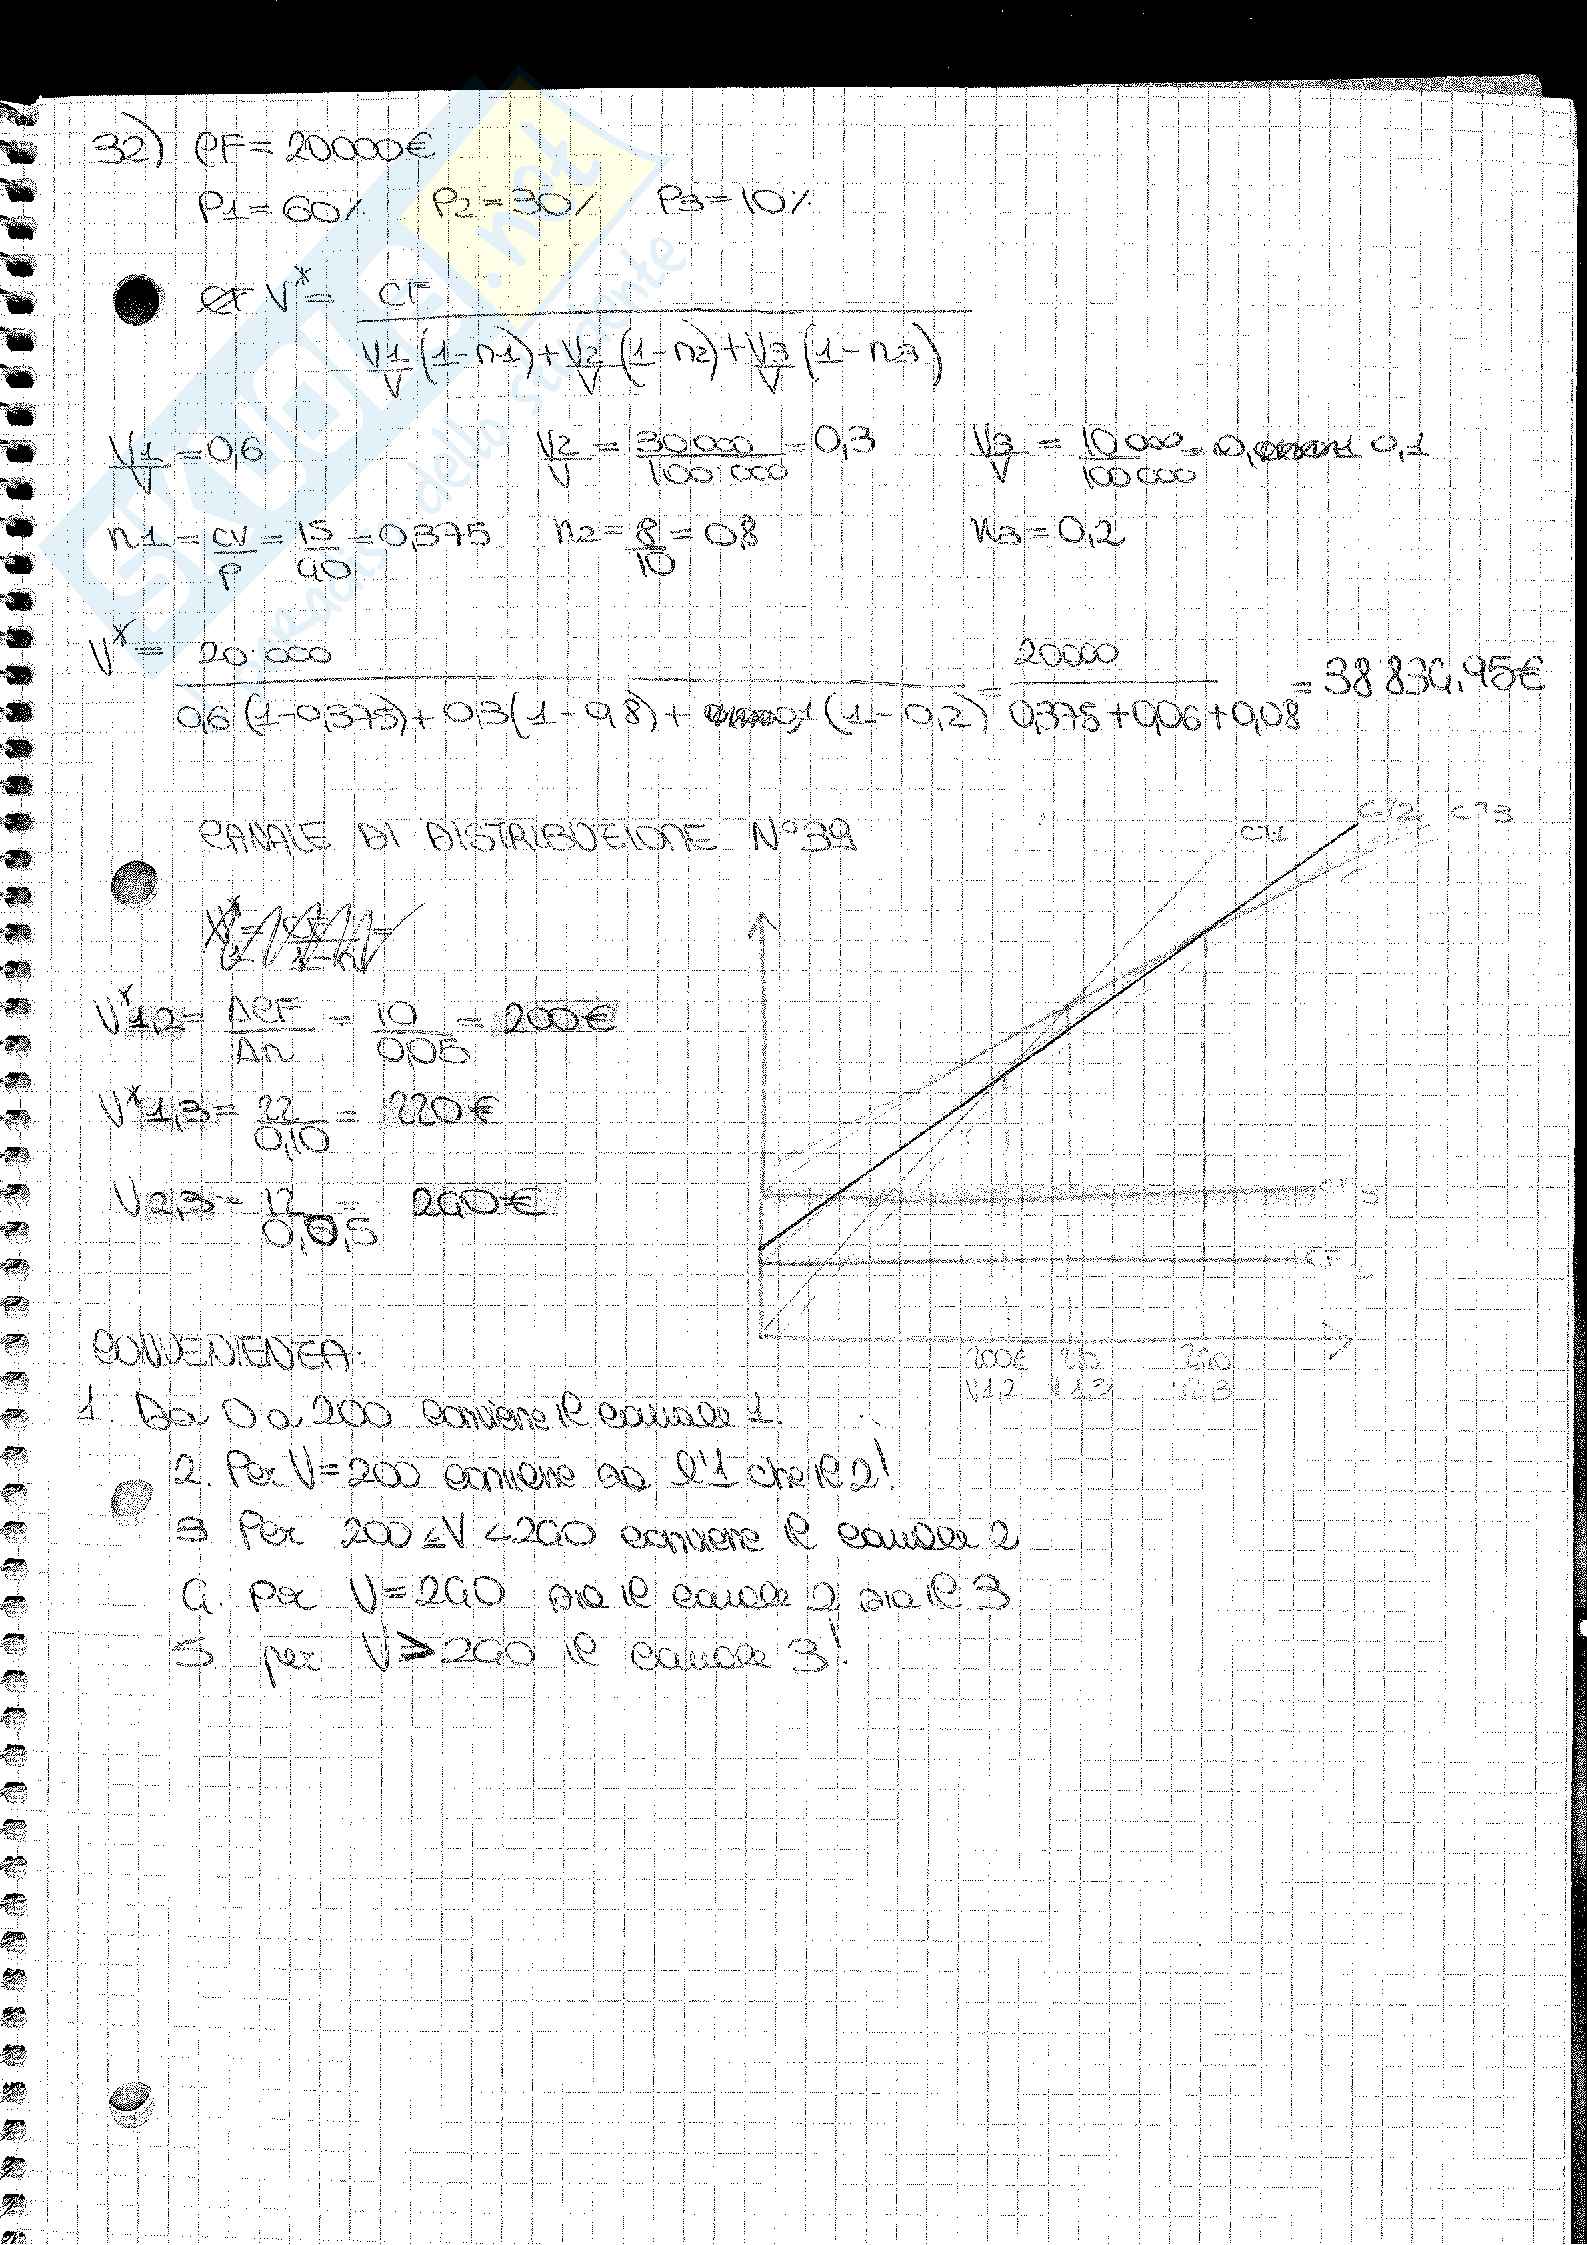 32) CF = 20000€
P1 = 60% P2 = 30% P3 = 10%
V* = CF
V1/V (1-n1) + V2/V (1-n2) + V3/V (1-n3)
V1/V = 0,6 V2/V = 30 000/100 000 = 0,3 V3/V = 10 000/100 000 = 0,1
n1 = CV/P = 15/40 = 0,375 n2 = 8/10 = 0,8 n3 = 0,2
V* = 20 000 = 20000 = 38 834,95€
0,6 (1-0,375) + 0,3 (1-0,8) + 0,1 (1-0,2) 0,375 + 0,06 + 0,08
CANALE DI DISTRIBUZIONE N°39
CT1 CT2 CT3
V*1,2 = ΔCF/Δn = 10/0,05 = 200€
V*1,3 = 22/0,10 = 220€
V2,3 = 12/0,05 = 240€
CF 3
CF 2
200€ 220 240
V1,2 V1,3 V2,3
CONVENIENZA:
1. Da 0 a 200 conviene il canale 1.
2. Per V=200 conviene sia l'1 che il 2!
3 Per 200 ≤ V < 240 conviene il canale 2
4. Per V=240 sia il canale 2 sia il 3
5 per V > 240 il canale 3!